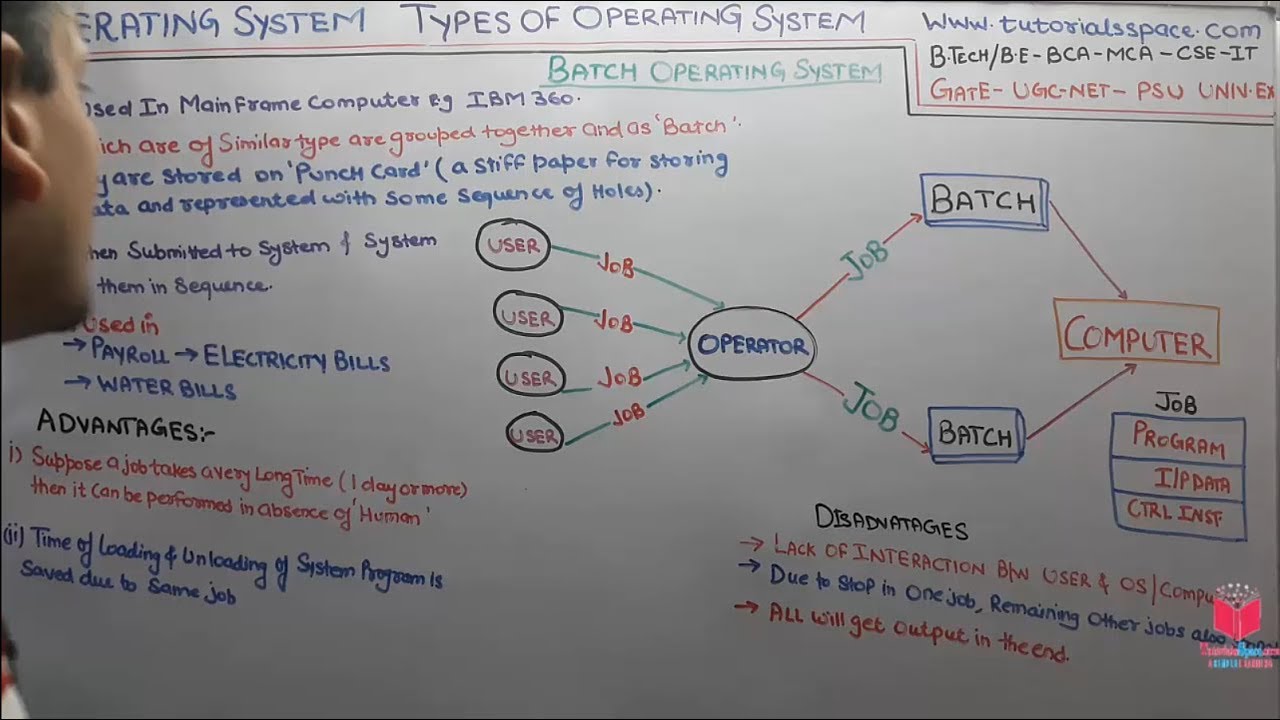 ERATING SYSTEM TYPES OF OPERATING SYSTEM
www.tutorialsspace.com
B.TECH/B.E-BCA-MCA-CSE-IT
GATE-UGC-NET-PSU UNIV.EX
BATCH OPERATING SYSTEM
used In MainFrame Computer Eg IBM 360.
ich are of Similar type are grouped together and as 'Batch'.
y are stored on 'Punch Card' (a stiff paper for storing
ata and represented with some sequence of Holes).
hen Submitted to System & System
them in Sequence.
used in
→ PAYROLL → ELECTRICITY BILLS
→ WATER BILLS
ADVANTAGES:-
i) Suppose a job takes a very Long Time (1 day or more)
then it can be performed in absence of 'Human'
(ii) Time of Loading & Unloading of System Program is
saved due to same job
USER
JOB
USER
JOB
USER
JOB
USER
JOB
OPERATOR
JOB
BATCH
JOB
BATCH
COMPUTER
JOB
PROGRAM
I/P DATA
CTRL INST.
DISADNATAGES
→ LACK OF INTERACTION B/W USER & OS/Compu
→ Due to stop in one job, Remaining other jobs also
→ ALL will get output in the end.